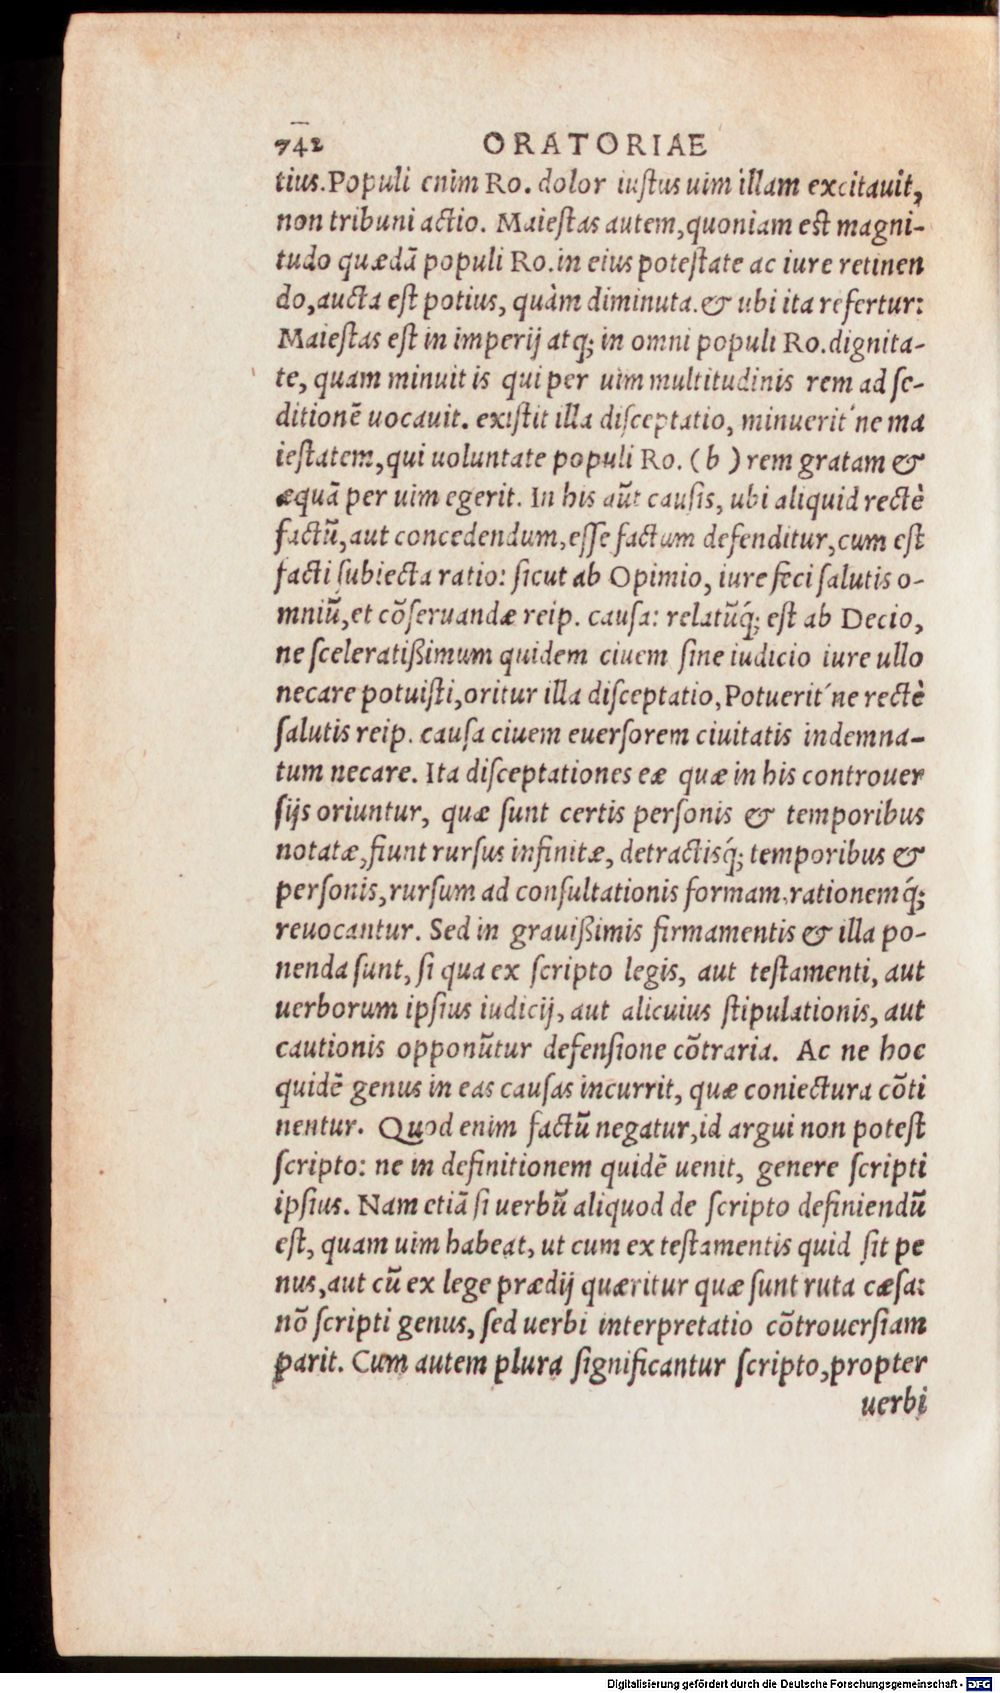 742 ORATORIAE
tius. Populi enim Ro. dolor iustus uim illam excitauit,
non tribuni actio. Maiestas autem, quoniam est magni-
tudo quædã populi Ro. in eius potestate ac iure retinen
do, aucta est potius, quàm diminuta. & ubi ita refertur:
Maiestas est in imperij atq; in omni populi Ro. dignita-
te, quam minuit is qui per uim multitudinis rem ad se-
ditionẽ uocauit. existit illa disceptatio, minuerit´ne ma
iestatem, qui uoluntate populi Ro. (b) rem gratam &
æquã per uim egerit. In his aũt causis, ubi aliquid rectè
factũ, aut concedendum, esse factum defenditur, cum est
facti subiecta ratio: sicut ab Opimio, iure feci salutis o-
mniũ, et cõseruandæ reip. causa: relatũq́; est ab Decio,
ne sceleratißimum quidem ciuem sine iudicio iure ullo
necare potuisti, oritur illa disceptatio, Potuerit´ne rectè
salutis reip. causa ciuem euersorem ciuitatis indemna-
tum necare. Ita disceptationes eæ quæ in his controuer
sijs oriuntur, quæ sunt certis personis & temporibus
notatæ, fiunt rursus infinitæ, detractisq́; temporibus &
personis, rursum ad consultationis formam, rationemq́;
reuocantur. Sed in grauißimis firmamentis & illa po-
nenda sunt, si qua ex scripto legis, aut testamenti, aut
uerborum ipsius iudicij, aut alicuius stipulationis, aut
cautionis opponũtur defensione cõtraria. Ac ne hoc
quidẽ genus in eas causas incurrit, quæ coniectura cõti
nentur. Quod enim factũ negatur, id argui non potest
scripto: ne in definitionem quidẽ uenit, genere scripti
ipsius. Nam etiã si uerbũ aliquod de scripto definiendũ
est, quam uim habeat, ut cum ex testamentis quid sit pe
nus, aut cũ ex lege prædij quæritur quæ sunt ruta cæsa:
nõ scripti genus, sed uerbi interpretatio cõtrouersiam
parit. Cum autem plura significantur scripto, propter
uerbi
Digitalisierung gefördert durch die Deutsche Forschungsgemeinschaft - DFG